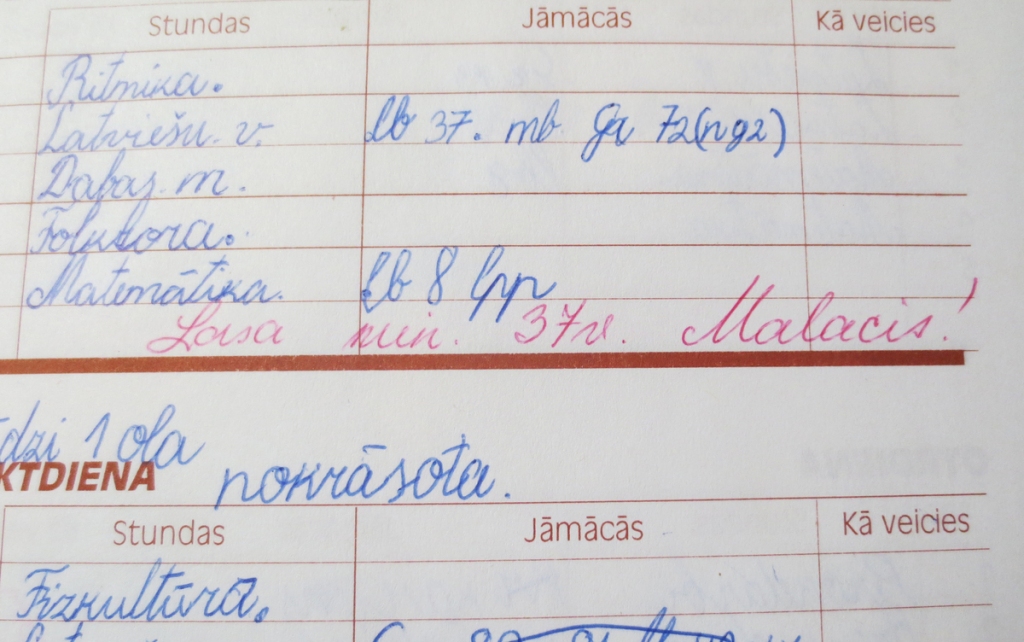 Stundas Jāmācās Kā veicies
Ritmika.
Latviešu v. lb 37. mb
Dabas m.
Folklora.
Matemātika. lb 8 lpp
Lasa min. 37v. Malacis!
dzi 1 ola
KTDIENA nokrāsota.
Stundas Jāmācās Kā veicies
Fizkultūra.